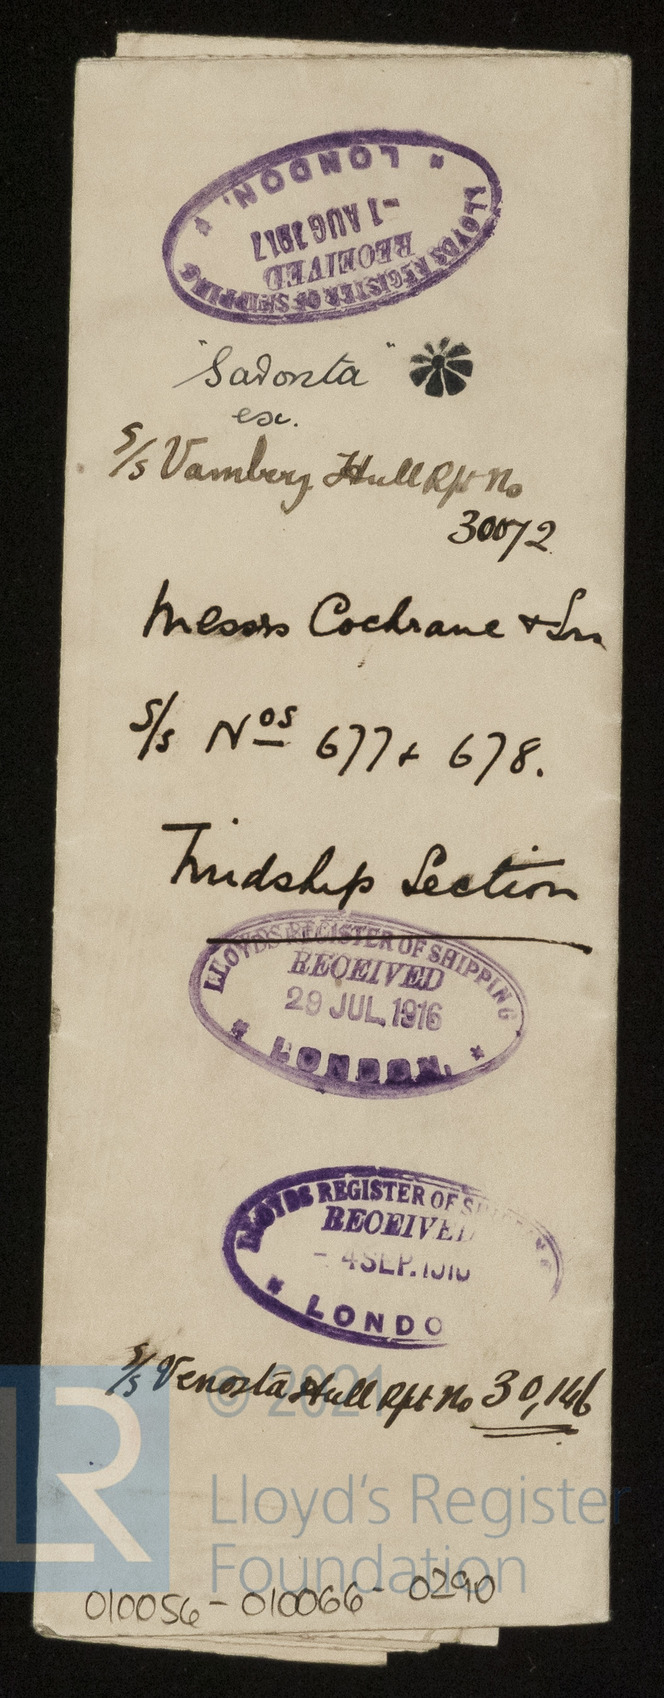 LLOYDS REGISTER OF SHIPPING
RECEIVED
-1 AUG 1917
* LONDON. *
"Sadonta"
ex.
S/S Vambery Hull Rpt No
30072
Messrs Cochrane & Sons
S/S Nos 677 & 678.
Midship Section
LLOYDS REGISTER OF SHIPPING
RECEIVED
29 JUL. 1916
* LONDON. *
LLOYDS REGISTER OF SHIPPING
RECEIVED
- 4 SEP. 1916
* LONDO
S/S Venosta Hull Rpt No 30,146
© 2021
LR
Lloyd's Register
Foundation
010056-010066-0290